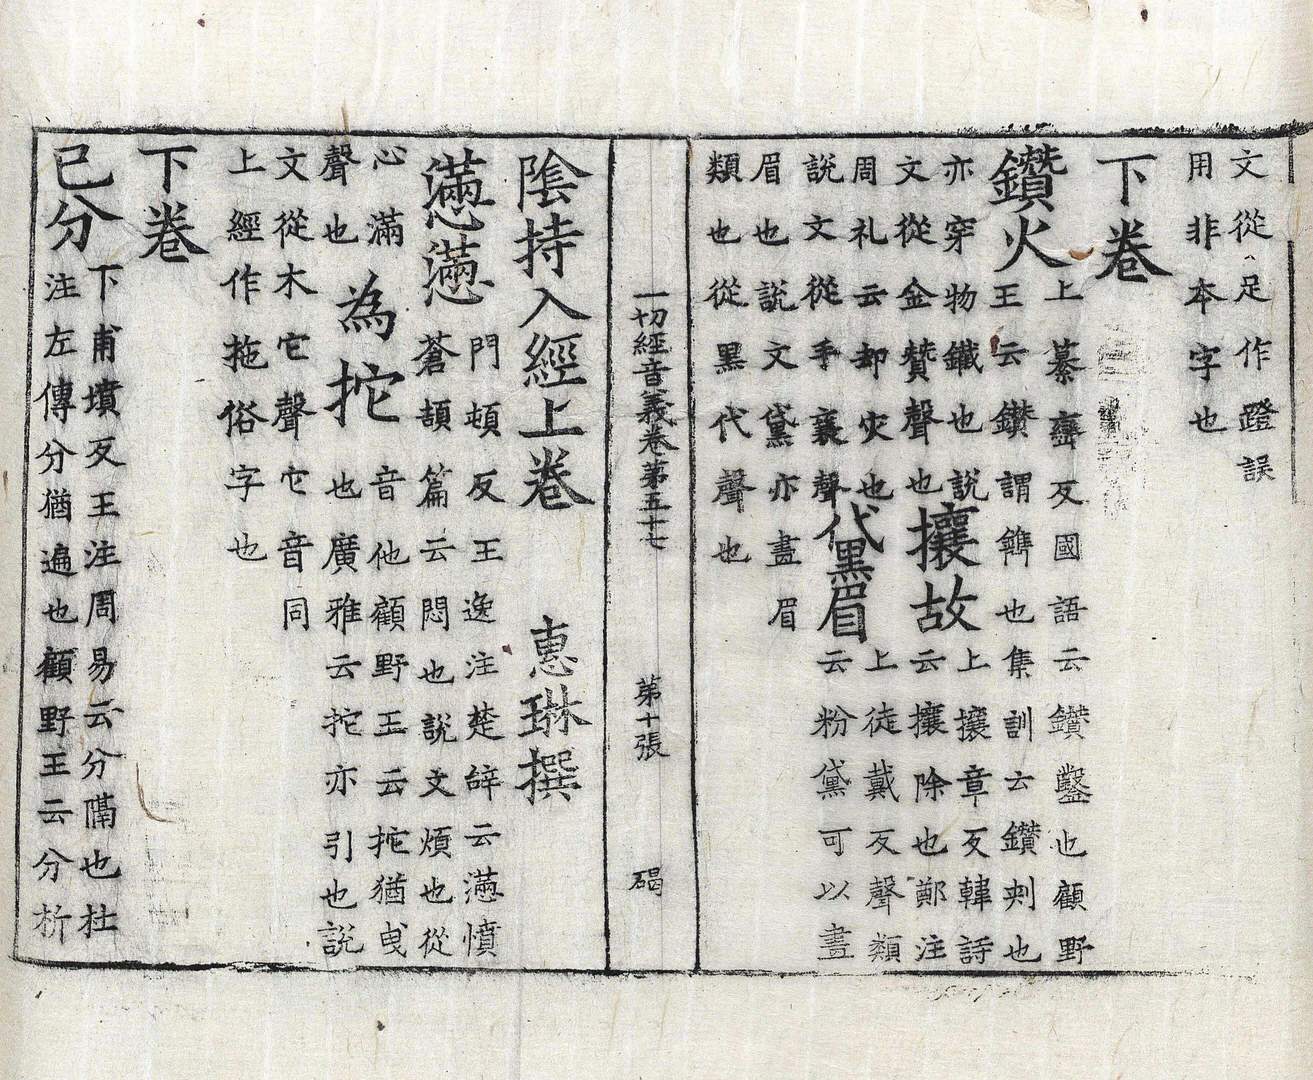 文從足作蹬誤
用非本字也
下卷
鑽火
上纂巒反國語云鑽鑿也顧野
王云鑽謂鐫也集訓云鑽刺也
亦穿物鐵也說
文從金贊聲也
攘故
上攘章反韓詩
云攘除也鄭注
周礼云却灾也
說文從手襄聲
黛眉
上徒戴反聲類
云粉黛可以畫
眉也說文黛亦畫眉
類也從黑代聲也
一切經音義卷第五十七 第十張 碣
陰持入經上卷 惠琳撰
懣懣
門頓反王逸注楚辝云懣憤
蒼頡篇云悶也說文煩也從
心滿
聲也
為拕
音他顧野王云拕猶曵
也廣雅云拕亦引也說
文從木它聲它音同
上經作拖俗字也
下卷
已分
下甫墳反王注周易云分隔也杜
注左傳分猶遍也顧野王云分析